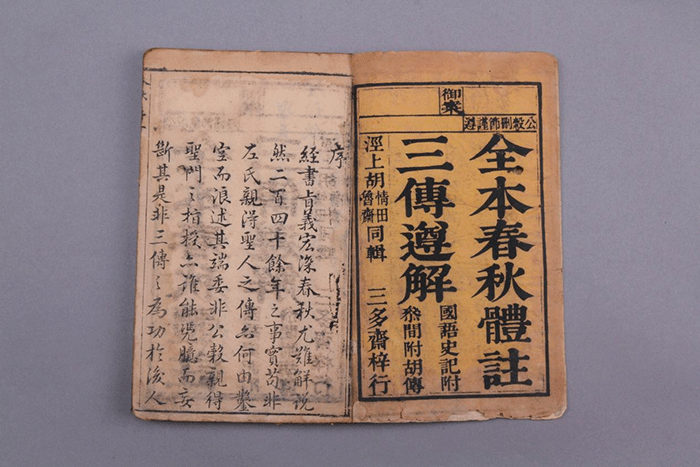 御案
公穀刪節謹遵
全本春秋體註
三傳遵解
國語史記附
叅間附胡傳
涇上胡情田魯齋同輯
三多齋梓行
序
經書旨義宏深春秋尤難解說
然二百四十餘年之事實苟非
左氏親得聖人之傳亦何由鑿
空而浪述其端委非公穀親得
聖門之指授亦誰能臆而妄
斷其是非三傳之為功於後人